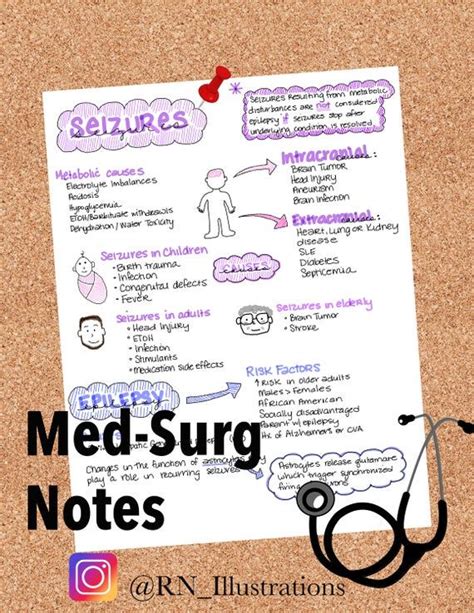 SEIZURES
* Seizures resulting from metabolic
disturbances are not considered
epilepsy if seizures stop after
underlying condition is resolved.
Metabolic causes
Electrolyte Imbalances
Acidosis
Hypoglycemia
ETOH/Barbiturate withdrawls
Dehydration / Water Toxicity
Intracranial causes:
Brain Tumor
Head Injury
Aneurism
Brain Infection
Extracranial causes:
Heart, Lung or Kidney
disease
SLE
Diabetes
Septicemia
Seizures in Children
• Birth trauma
• Infection
• Congenital defects
• Fever
CAUSES
Seizures in adults
• Head Injury
• ETOH
• Infection
• Stimulants
• Medication side effects
Seizures in elderly
• Brain Tumor
• Stroke
EPILEPSY
Risk Factors
↑ Risk in older adults
Males > Females
African American
Socially disadvantaged
Parent w/ epilepsy
of Alzheimers or CVA
Changes in the function of astrocytes
play a role in recurring seizures
Astrocytes release glutamate
which trigger synchronized
firing
Med-Surg
Notes
@RN_Illustrations